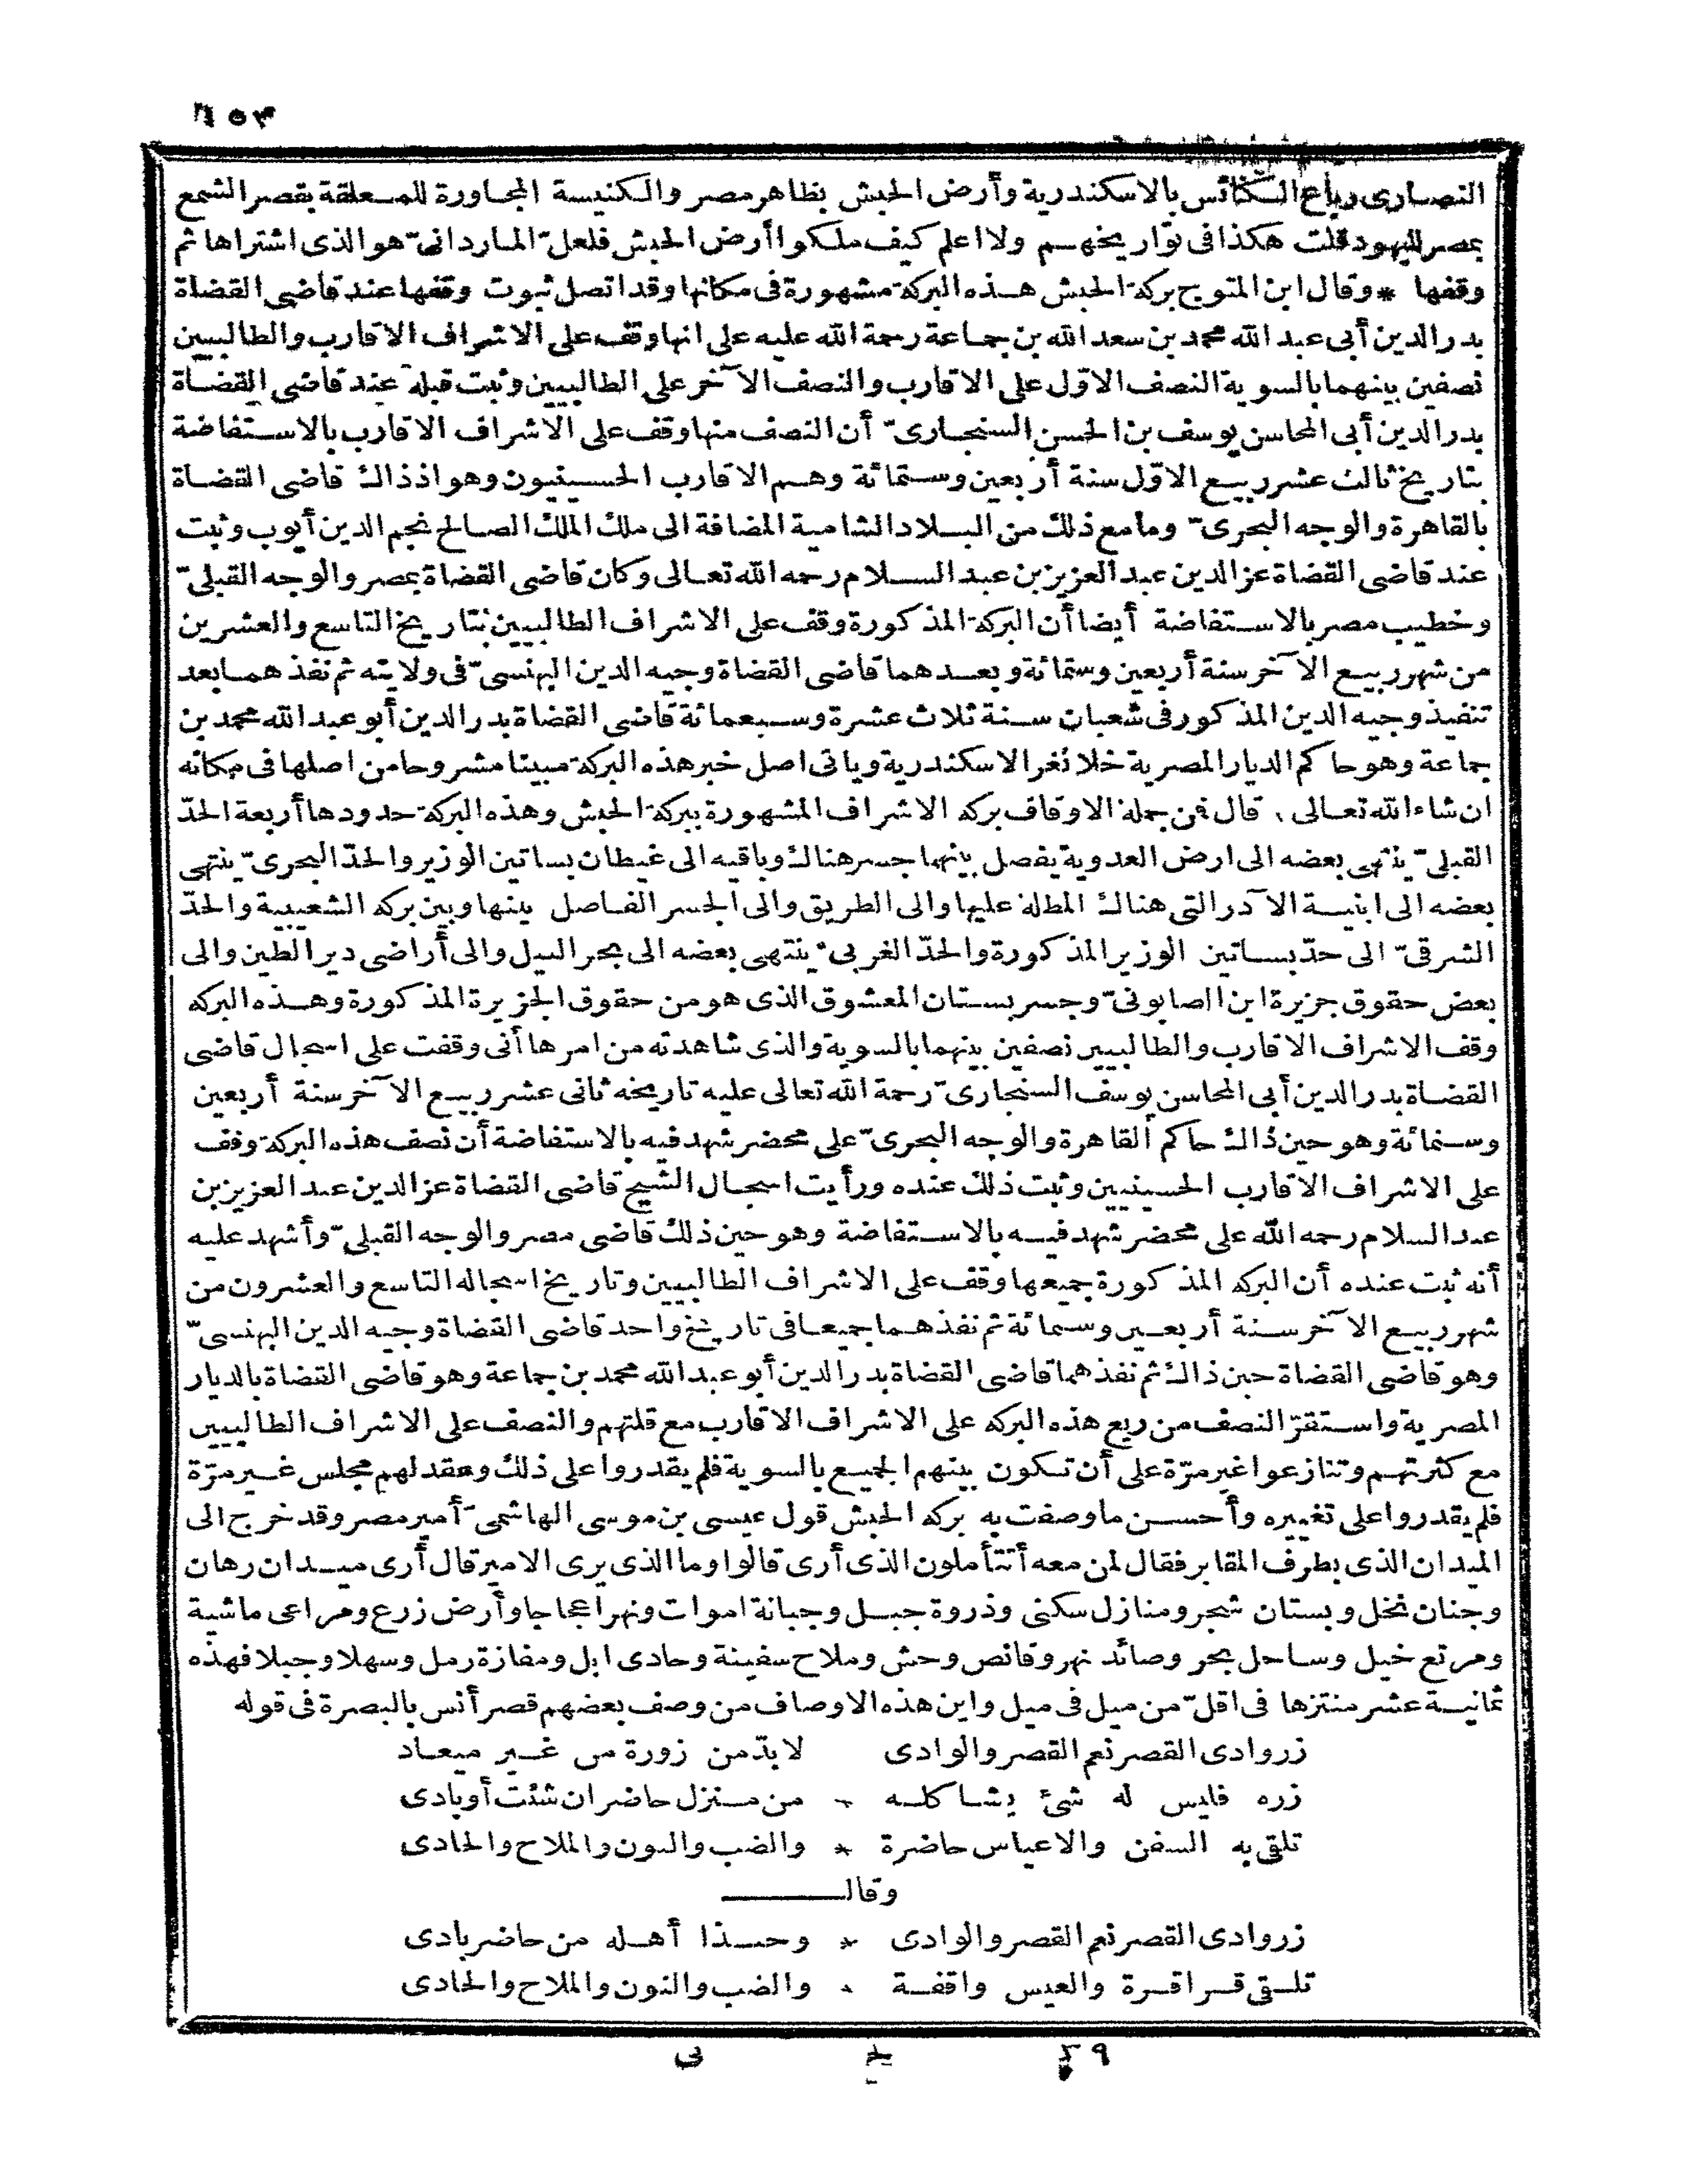 ١٥٣
النصارى رباع الكنائس بالاسكندرية وأرض الحبش بظاهر مصر والكنيسة المجاورة للمعلقة بقصر الشمع
بمصر لليهود قلت هكذا فى تواريخهم ولا اعلم كيف ملكوا أرض الحبش فلعل الماردانى هو الذى اشتراها ثم
وقفها * وقال ابن المتوج بركة الحبش هذه البركة مشهورة فى مكانها وقد اتصل ثبوت وقفها عند قاضى القضاة
بدر الدين أبى عبد الله محمد بن سعد الله بن جماعة رحمة الله عليه على انها وقف على الاشراف الاقارب والطالبيين
نصفين بينهما بالسوية النصف الاوّل على الاقارب والنصف الآخر على الطالبيين وثبت قبله عند قاضى القضاة
بدر الدين أبى المحاسن يوسف بن الحسن السنجارىّ أن النصف منها وقف على الاشراف الاقارب بالاستفاضة
بتاريخ ثالث عشر ربيع الاوّل سنة أربعين وستمائة وهم الاقارب الحسينيون وهو اذ ذاك قاضى القضاة
بالقاهرة والوجه البحرىّ وما مع ذلك من البلاد الشامية المضافة الى ملك الملك الصالح نجم الدين أيوب وثبت
عند قاضى القضاة عز الدين عبد العزيز بن عبد السلام رحمه الله تعالى وكان قاضى القضاة بمصر والوجه القبلىّ
وخطيب مصر بالاستفاضة أيضا أن البركة المذكورة وقف على الاشراف الطالبيين بتاريخ التاسع والعشرين
من شهر ربيع الآخر سنة أربعين وستمائة وبعدهما قاضى القضاة وجيه الدين البهنسىّ فى ولايته ثم نفذهما بعد
تنفيذ وجيه الدين المذكور فى شعبان سنة ثلاث عشرة وسبعمائة قاضى القضاة بدر الدين أبو عبد الله محمد بن
جماعة وهو حاكم الديار المصرية خلا ثغر الاسكندرية وياتى اصل خبر هذه البركة مبينا مشروحا من اصلها فى مكانه
ان شاء الله تعالى . قال فمن جملة الاوقاف بركه الاشراف المشهورة ببركة الحبش وهذه البركة حدودها أربعة الحدّ
القبلىّ ينتهى بعضه الى ارض العدوية يفصل بينهما جسر هناك وباقيه الى غيطان بساتين الوزير والحدّ البحرىّ ينتهى
بعضه الى ابنية الآدر التى هناك المطلة عليها والى الطريق والى الجسر الفاصل بينها وبين بركه الشعيبية والحدّ
الشرقىّ الى حدّ بساتين الوزير المذكورة والحدّ الغربىّ ينتهى بعضه الى بحر النيل والى أراضى دير الطين والى
بعض حقوق جزيرة ابن الصابونىّ وجسر بستان المعشوق الذى هو من حقوق الجزيرة المذكورة وهذه البركه
وقف الاشراف الاقارب والطالبيين نصفين بينهما بالسوية والذى شاهدته من امرها أنى وقفت على اسجال قاضى
القضاة بدر الدين أبى المحاسن يوسف السنجارىّ رحمة الله تعالى عليه تاريخه ثانى عشر ربيع الآخر سنة أربعين
وستمائة وهو حين ذاك حاكم القاهرة والوجه البحرىّ على محضر شهد فيه بالاستفاضة أن نصف هذه البركة وقف
على الاشراف الاقارب الحسينيين وثبت ذلك عنده ورأيت اسجال الشيخ قاضى القضاة عز الدين عبد العزيز بن
عبد السلام رحمه الله على محضر شهد فيه بالاستفاضة وهو حين ذلك قاضى مصر والوجه القبلىّ وأشهد عليه
أنه ثبت عنده أن البركه المذكورة جميعها وقف على الاشراف الطالبيين وتاريخ اسجاله التاسع والعشرون من
شهر ربيع الآخر سنة أربعين وستمائة ثم نفذهما جميعا فى تاريخ واحد قاضى القضاة وجيه الدين البهنسىّ
وهو قاضى القضاة حين ذاك ثم نفذهما قاضى القضاة بدر الدين أبو عبد الله محمد بن جماعة وهو قاضى القضاة بالديار
المصرية واستقرّ النصف من ريع هذه البركه على الاشراف الاقارب مع قلتهم والنصف على الاشراف الطالبيين
مع كثرتهم وتنازعوا غير مرّة على أن تكون بينهم الجميع بالسوية فلم يقدروا على ذلك وعقد لهم مجلس غير مرّة
فلم يقدروا على تغييره وأحسن ما وصفت به بركه الحبش قول عيسى بن موسى الهاشمىّ أمير مصر وقد خرج الى
الميدان الذى بطرف المقابر فقال لمن معه أتتأملون الذى أرى قالوا وما الذى يرى الامير قال أرى ميدان رهان
وجنان نخل وبستان شجر ومنازل سكنى وذروة جبل وجبانة اموات ونهرا عجاجا وأرض زرع ومراعى ماشية
ومرتع خيل وساحل بحر وصائد نهر وقانص وحش وملاح سفينة وحادى ابل ومفازة رمل وسهلا وجبلا فهذه
ثمانية عشر منتزها فى اقلّ من ميل فى ميل واين هذه الاوصاف من وصف بعضهم قصر أنس بالبصرة فى قوله
زر وادى القصر نعم القصر والوادى لا بدّ من زورة من غير ميعاد
زره فليس له شئ يشاكله * من منزل حاضر ان شئت أو بادى
تلقى به السفن والاعياس حاضرة * والضب والنون والملاح والحادى
وقال
زر وادى القصر نعم القصر والوادى * وحبذا أهله من حاضر بادى
تلقى قراقرة والعيس واقفة * والضب والنون والملاح والحادى